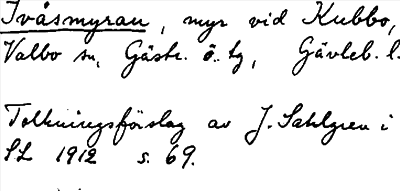 Tvåsmyran, myr vid Kubbo,
Valbo sn, Gästr. ö. tg, Gävleb. l.
Tolkningsförslag av J. Sahlgren i
SL 1912 s. 69.